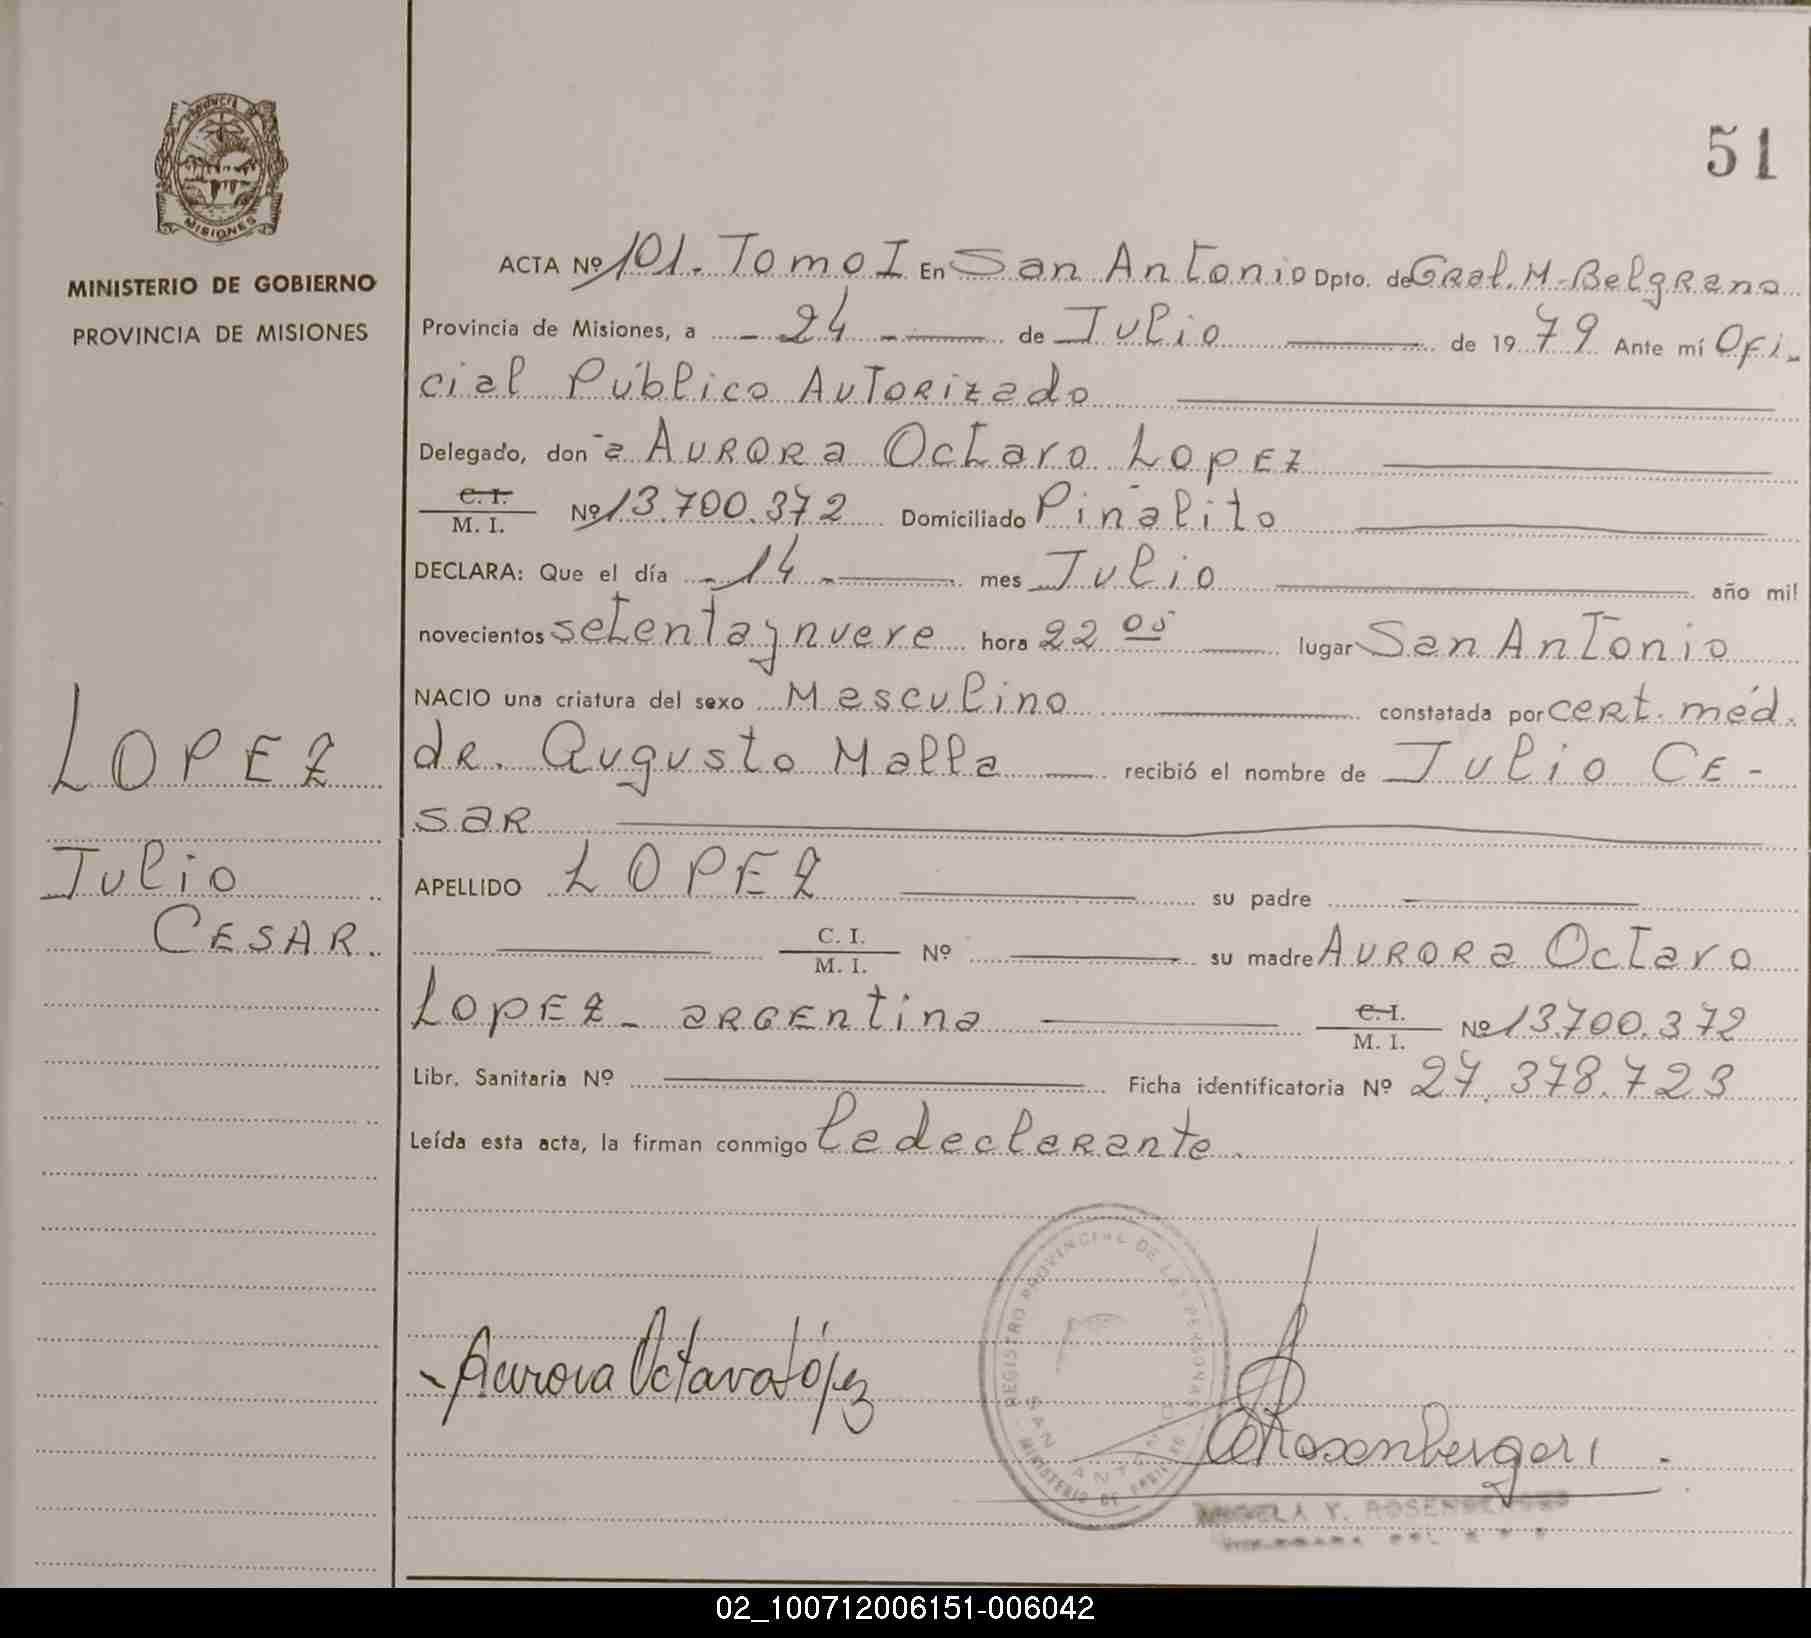 PROVINCIA DE
MISIONES
MINISTERIO DE GOBIERNO
PROVINCIA DE MISIONES
LOPEZ
Julio
CESAR.
51
ACTA Nº 101. Tomo I En San Antonio Dpto. de Gral. M. Belgrano
Provincia de Misiones, a - 24 - de Julio de 19 79 Ante mí Ofi-
cial Público Autorizado
Delegado, don-a Aurora Octavo Lopez
C. I.
M. I. Nº 13.700.372 Domiciliado Piñalito
DECLARA: Que el día - 14 - mes Julio año mil
novecientos setenta y nueve hora 22 05 lugar San Antonio
NACIO una criatura del sexo Masculino constatada por cert. méd.
dr. Augusto Malla recibió el nombre de Julio Ce-
sar
APELLIDO LOPEZ su padre
C. I.
M. I. Nº su madre Aurora Octavo
Lopez - argentina C. I.
M. I. Nº 13.700.372
Libr. Sanitaria Nº Ficha identificatoria Nº 27.378.723
Leída esta acta, la firman conmigo la declarante.
REGISTRO PROVINCIAL DE LAS PERSONAS
SAN ANTONIO
MINISTERIO DE
Aurora Octava López
Rosenberger
Y. ROSENBERGER
02_100712006151-006042